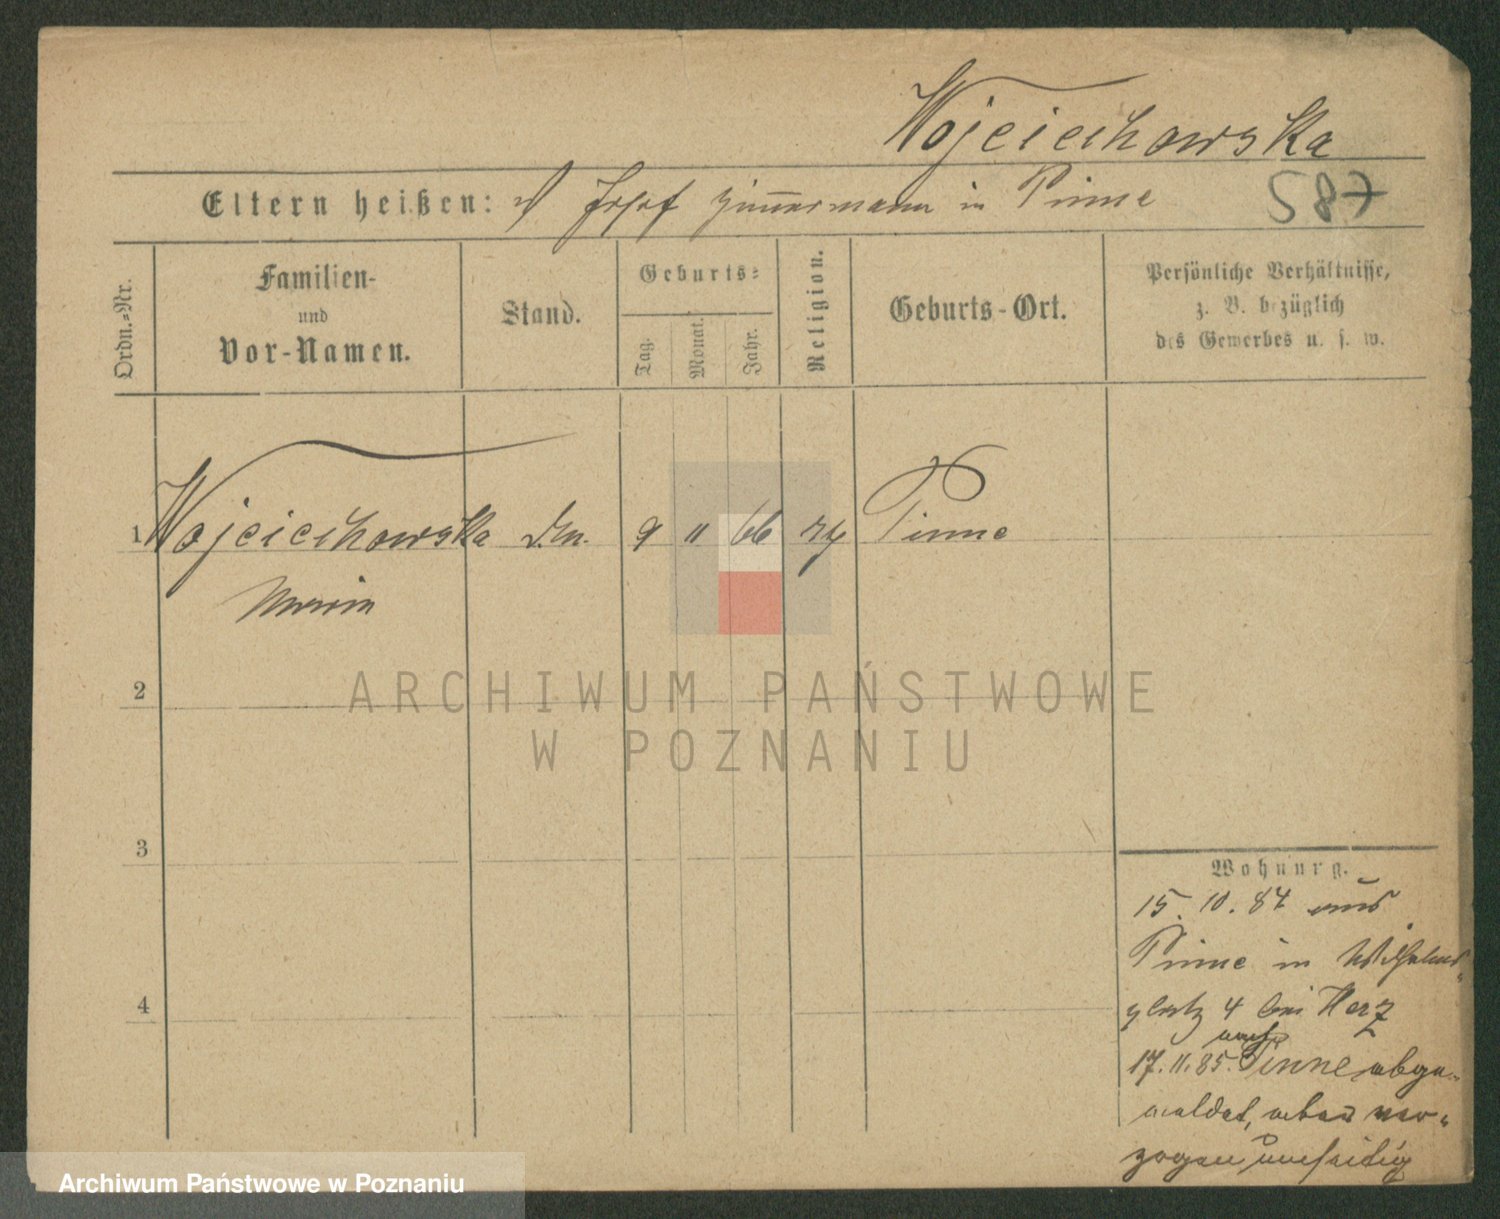 Wojciechowska
Eltern heißen: V Josef Zimmermann in Pinne
587
Ordn.-Nr.
Familien-
und
Vor-Namen.
Stand.
Geburts-
Tag.
Monat.
Jahr.
Religion.
Geburts-Ort.
Persönliche Verhältnisse,
z. B. bezüglich
des Gewerbes u. s. w.
1 Wojciechowska 9 11 66 Pinne
2
ARCHIWUM PAŃSTWOWE
W POZNANIU
3
4
Wohnung.
15. 10. 84 aus
Pinne in Wilhelms-
platz 4 bei Herz
nach
17. 11. 85. Pinne abge-
meldet, ver-
zogen
Archiwum Państwowe w Poznaniu